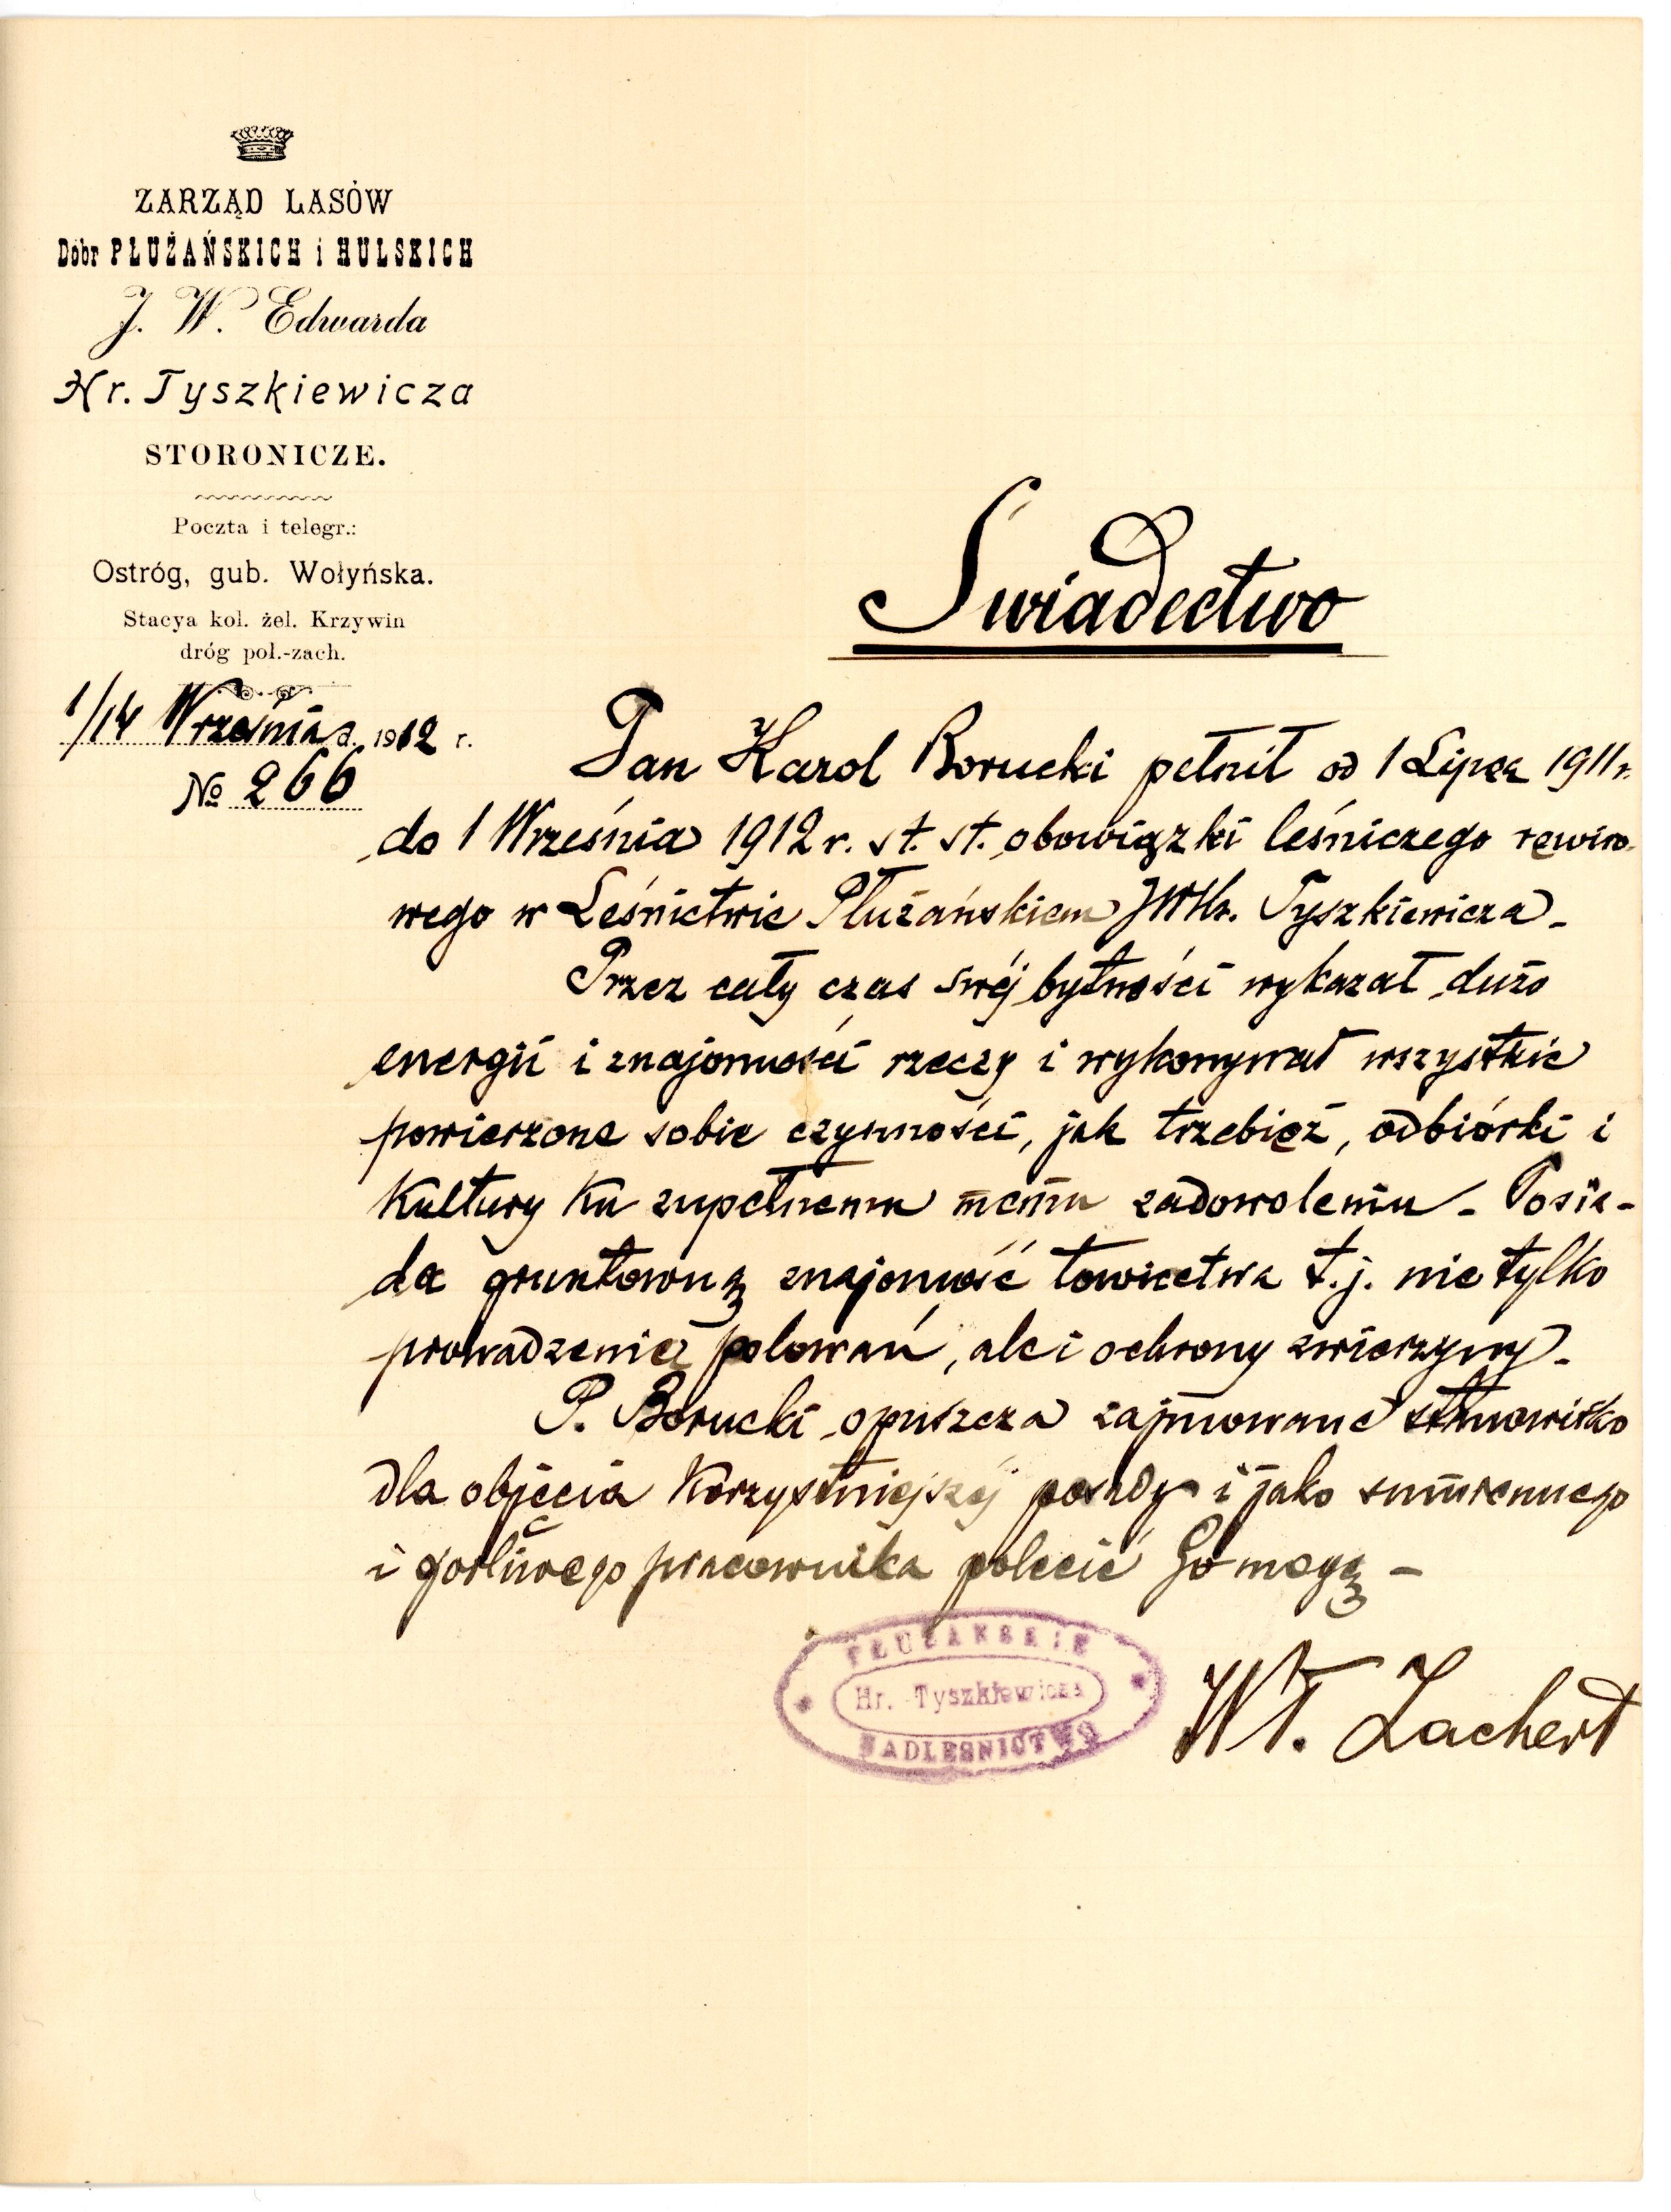 ZARZĄD LASÓW
Dóbr PŁUŻAŃSKICH i HULSKICH
J. W. Edwarda
Hr. Tyszkiewicza
STORONICZE.
Poczta i telegr.:
Ostróg, gub. Wołyńska.
Stacya kol. żel. Krzywin
dróg poł.-zach.
1/14 Września d. 1912 r.
No 266
Świadectwo
Pan Karol Borucki pełnił od 1 Lipca 1911 r.
do 1 Września 1912 r. st. st. obowiązki leśniczego rewiro-
wego w Leśnictwie Płużańskiem JWHr. Tyszkiewicza -
Przez cały czas swéj bytności wykazał dużo
energii i znajomości rzeczy i wykonywał wszystkie
powierzone sobie czynności, jak trzebież, odbiórki i
Kultury Ku zupełnemu memu zadowoleniu - Posia-
da gruntowną znajomość łowiectwa t. j. nie tylko
prowadzenie polowań, ale i ochrony zwierzyny -
P. Borucki opuszcza zajmowane stanowisko
dla objęcia Korzystniejszéj posady i jako sumiennego
i gorliwego pracownika polecić Go mogę -
PŁUŻAŃSKIE
Hr. Tyszkiewicza
NADLEŚNICTWO
WŁ. Lachert